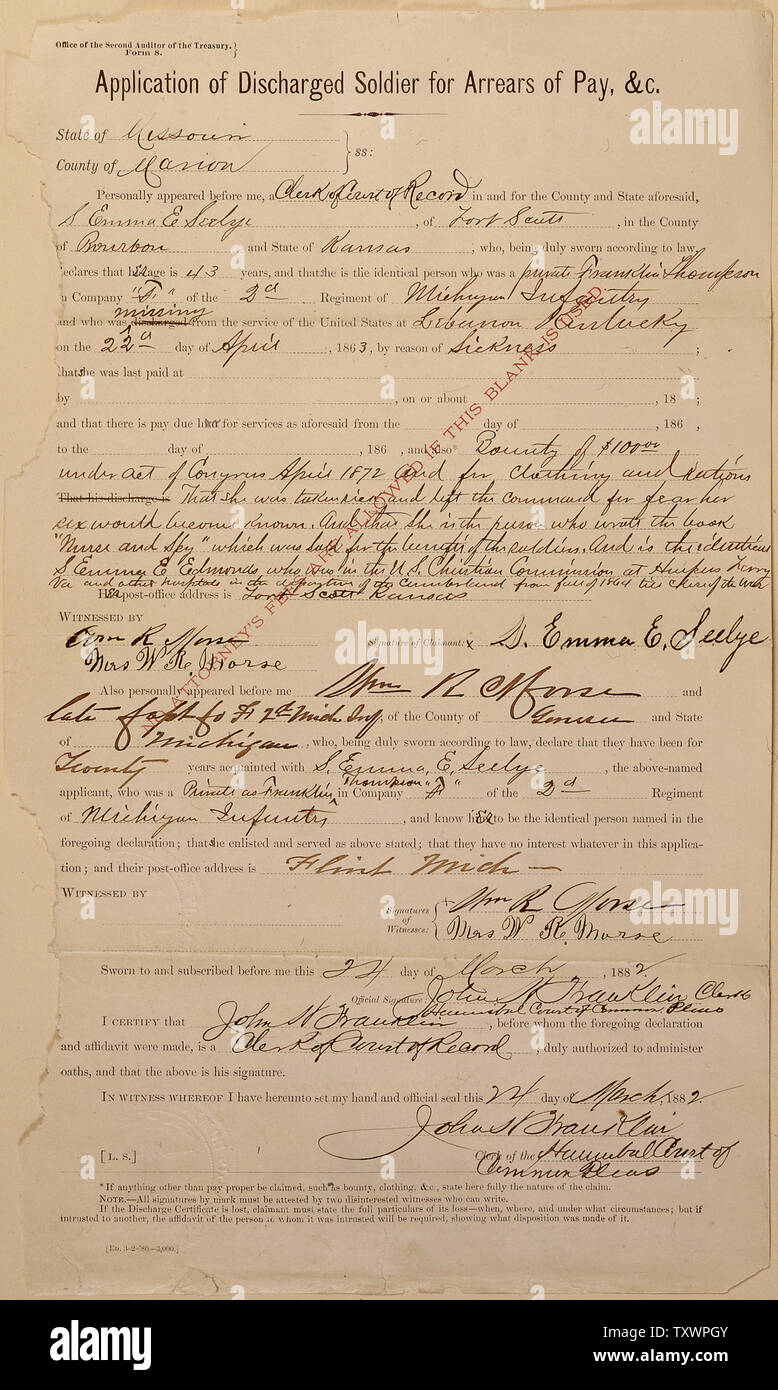 Office of the Second Auditor of the Treasury.}
Form 8.
Application of Discharged Soldier for Arrears of Pay, &c.
State of Missouri
County of Marion } 88:
Personally appeared before me, a Clerk of Court of Record in and for the County and State aforesaid,
S. Emma E. Seelye, of Fort Scott, in the County
of Bourbon and State of Kansas, who, being duly sworn according to law,
declares that her age is 43 years, and that she is the identical person who was a private Franklin Thompson
in Company "F" of the 2d Regiment of Michigan Infantry
missing
and who was discharged from the service of the United States at Lebanon Kentucky
on the 22d day of April, 1863, by reason of Sickness ;
that she was last paid at
by , on or about , 18 ;
and that there is pay due her for services as aforesaid from the day of , 186 ,
to the day of , 186 , and also* Bounty of $100.00
under act of Congress April 1872 and for clothing and Rations
That his discharge is That she was taken sick and left the command for fear her
sex would become known. And that she is the person who wrote the book
"Nurse and Spy" which was sold for the benefit of the soldiers. And is the identical
S. Emma E. Edmonds, who was in the U.S. Christian Commission at Harpers Ferry
Va and other hospitals in the department of the Cumberland from fall of 1864 till close of the war
Her post-office address is Fort Scott Kansas
NO ATTORNEY'S FEE ALLOWED IF THIS BLANK IS USED.
WITNESSED BY
Wm R Morse
Signature of Claimant: x S. Emma E. Seelye
Mrs W. R. Morse
Also personally appeared before me Wm R Morse and
late Capt Co F 2d Mich Inf, of the County of Genesee and State
of Michigan, who, being duly sworn according to law, declare that they have been for
Twenty years acquainted with S. Emma, E. Seelye, the above-named
Thompson
applicant, who was a Private as Franklin in Company "F" of the 2d Regiment
of Michigan Infantry, and know her to be the identical person named in the
foregoing declaration; that she enlisted and served as above stated; that they have no interest whatever in this applica-
tion; and their post-office address is Flint Mich
WITNESSED BY
Signatures of Witnesses: { Wm R Morse
Mrs W. R. Morse
Sworn to and subscribed before me this 24 day of March, 1882
Official Signature: John N Franklin Clerk
Hannibal Court of Common Pleas
I CERTIFY that John N Franklin, before whom the foregoing declaration
and affidavit were made, is a Clerk of Court of Record, duly authorized to administer
oaths, and that the above is his signature.
IN WITNESS WHEREOF I have hereunto set my hand and official seal this 24 day of March, 1882.
John N Franklin
[L. S.]
Clerk of the Hannibal Court of
Common Pleas
*If anything other than pay proper be claimed, such as bounty, clothing, &c., state here fully the nature of the claim.
NOTE.—All signatures by mark must be attested by two disinterested witnesses who can write.
If the Discharge Certificate is lost, claimant must state the full particulars of its loss—when, where, and under what circumstances; but if
intrusted to another, the affidavit of the person to whom it was intrusted will be required, showing what disposition was made of it.
[ED. 3-2-'80—3,000.]
alamy
alamy
alamy
alamy
alamy
alamy
Image ID: TXWPGY
www.alamy.com